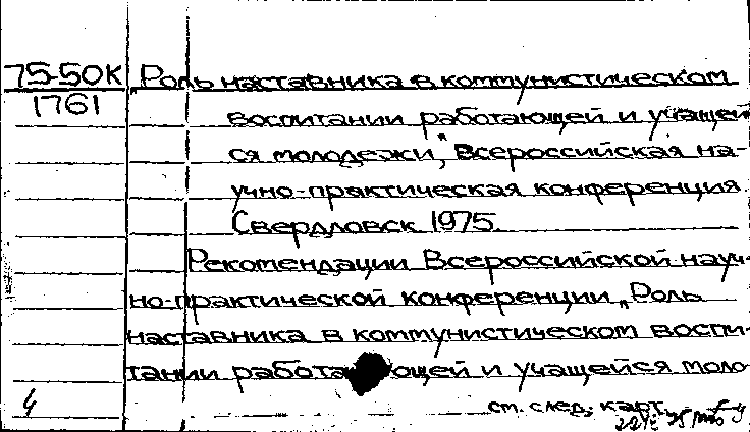 75-50К „Роль наставника в коммунистическом
1761
воспитании работающей и учащей
ся молодежи," Всероссийская на-
учно-практическая конференция
Свердловск 1975.
Рекомендации Всероссийской науч-
но-практической конференции „Роль
наставника в коммунистическом воспи-
тании работающей и учащейся моло
4
см. след. карт.